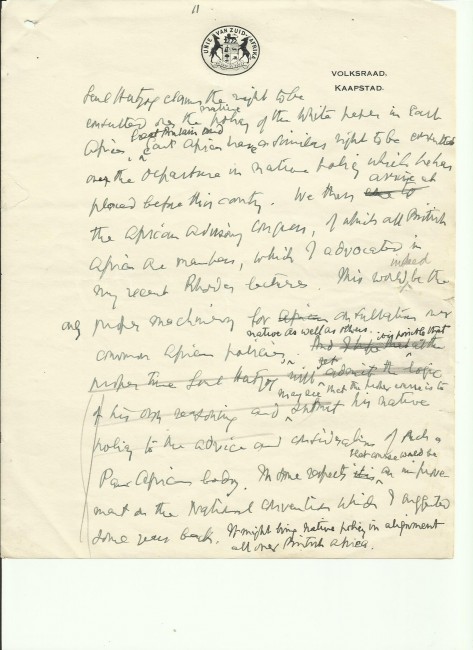 11
UNIE VAN ZUID-AFRIKA
VOLKSRAAD.
KAAPSTAD.
Genl Hertzog claims the right to be
consulted over the native policy of the White paper in East
Africa, Great Britain and East Africa have a similar right to be consulted
over the departure in native policy which he has
placed before this country. We thus arrive at
the African advisory congress, of which all British
Africa are members, which I advocated in
my recent Rhodes lectures. This would indeed be the
only proper machinery for African consultation over
native as well as other
common African policies. And I hope that at the it is possible that
proper time Genl Hertzog will yet admit the logic
may see that the proper course is to
of his own reasoning and submit his native
policy to the advice and consideration of such a
Pan African body. In some respects it is that course would be an improve
ment on the National Convention which I suggested
some years back. It might bring native policy in alignment
all over British Africa.